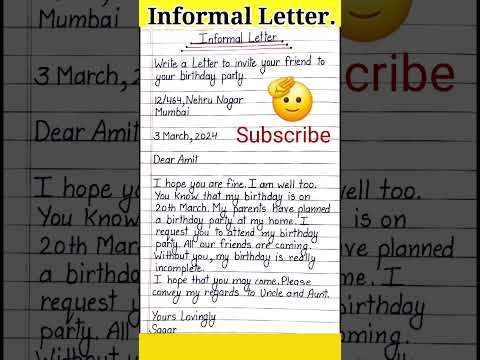 Informal Letter.
Informal Letter
Write a Letter to invite your friend to
your birthday party.
12/464, Nehru Nagar
Mumbai
3 March, 2024
Dear Amit
I hope you are fine. I am well too.
You know that my birthday is on
20th March. My parents have planned
a birthday party at my home. I
request you to attend my birthday
party. All our friends are coming.
Without you, my birthday is really
incomplete.
I hope that you may come. Please
convey my regards to Uncle and Aunt.
Yours Lovingly
Sagar
Subscribe
Mumbai
3 March, 2
Dear Amit
I hope
You know
20th Marc
a birthda
request
party. All
Without y
cribe
ell too.
is on
planned
. I
irthday
oming.